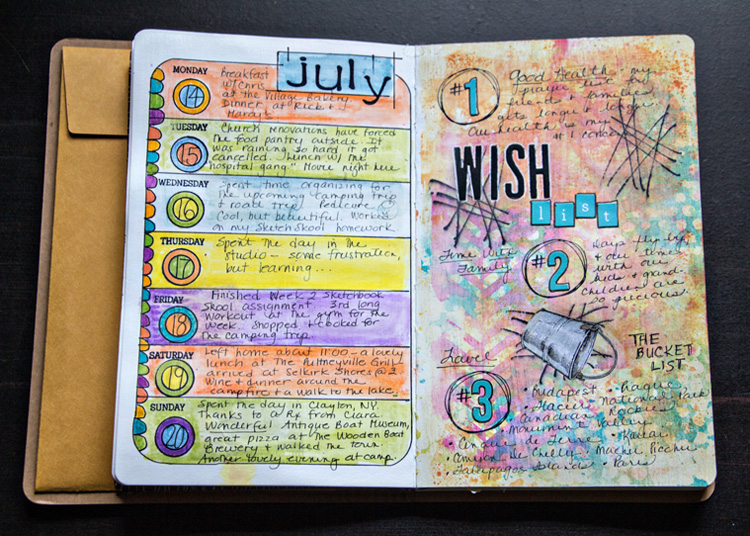 july
MONDAY
14
Breakfast
w/Chris
at the Village Bakery.
Dinner at Rick &
Hardy's
TUESDAY
15
Church renovations have forced
the food pantry outside. It
was raining so hard it got
cancelled. Lunch w/ the
hospital gang." Movie night here
WEDNESDAY
16
Spent time organizing for
the upcoming camping trip
& road trip. Pedicure
Cool, but beautiful. Worked
on my Sketch Skool homework.
THURSDAY
17
Spent the day in the
studio – some frustration,
but learning...
FRIDAY
18
Finished Week 2 Sketchbook
Skool assignment. 3rd long
workout at the gym for the
week. Shopped & cooked for
the camping trip
SATURDAY
19
Left home about 11:00 – a lovely
lunch at The Pultneyville Grill –
arrived at Selkirk Shores @ 2
Wine & dinner around the
campfire & a walk to the lake.
SUNDAY
20
Spent the day in Clayton, NY
Thanks to a Rx from Ciara
Wonderful Antique Boat Museum,
great pizza at The Wooden Boat
Brewery & walked the town.
Another lovely evening at camp.
#1
Good Health – my
prayer list for
friends & families
gets longer & longer.
Our health is my
#1 concern
WISH
list
Time With
Family
#2
Days flip by
& our times
with our
kids & grand
children are
so precious
THE
BUCKET
LIST
Travel
#3
• Budapest • Prague
• Glacier National Park
• Canadian Rockies
• Monument Valley
• Cinque de Terre
• Canyon de Chelly • Machu Picchu
• Galapagos Islands • Paris